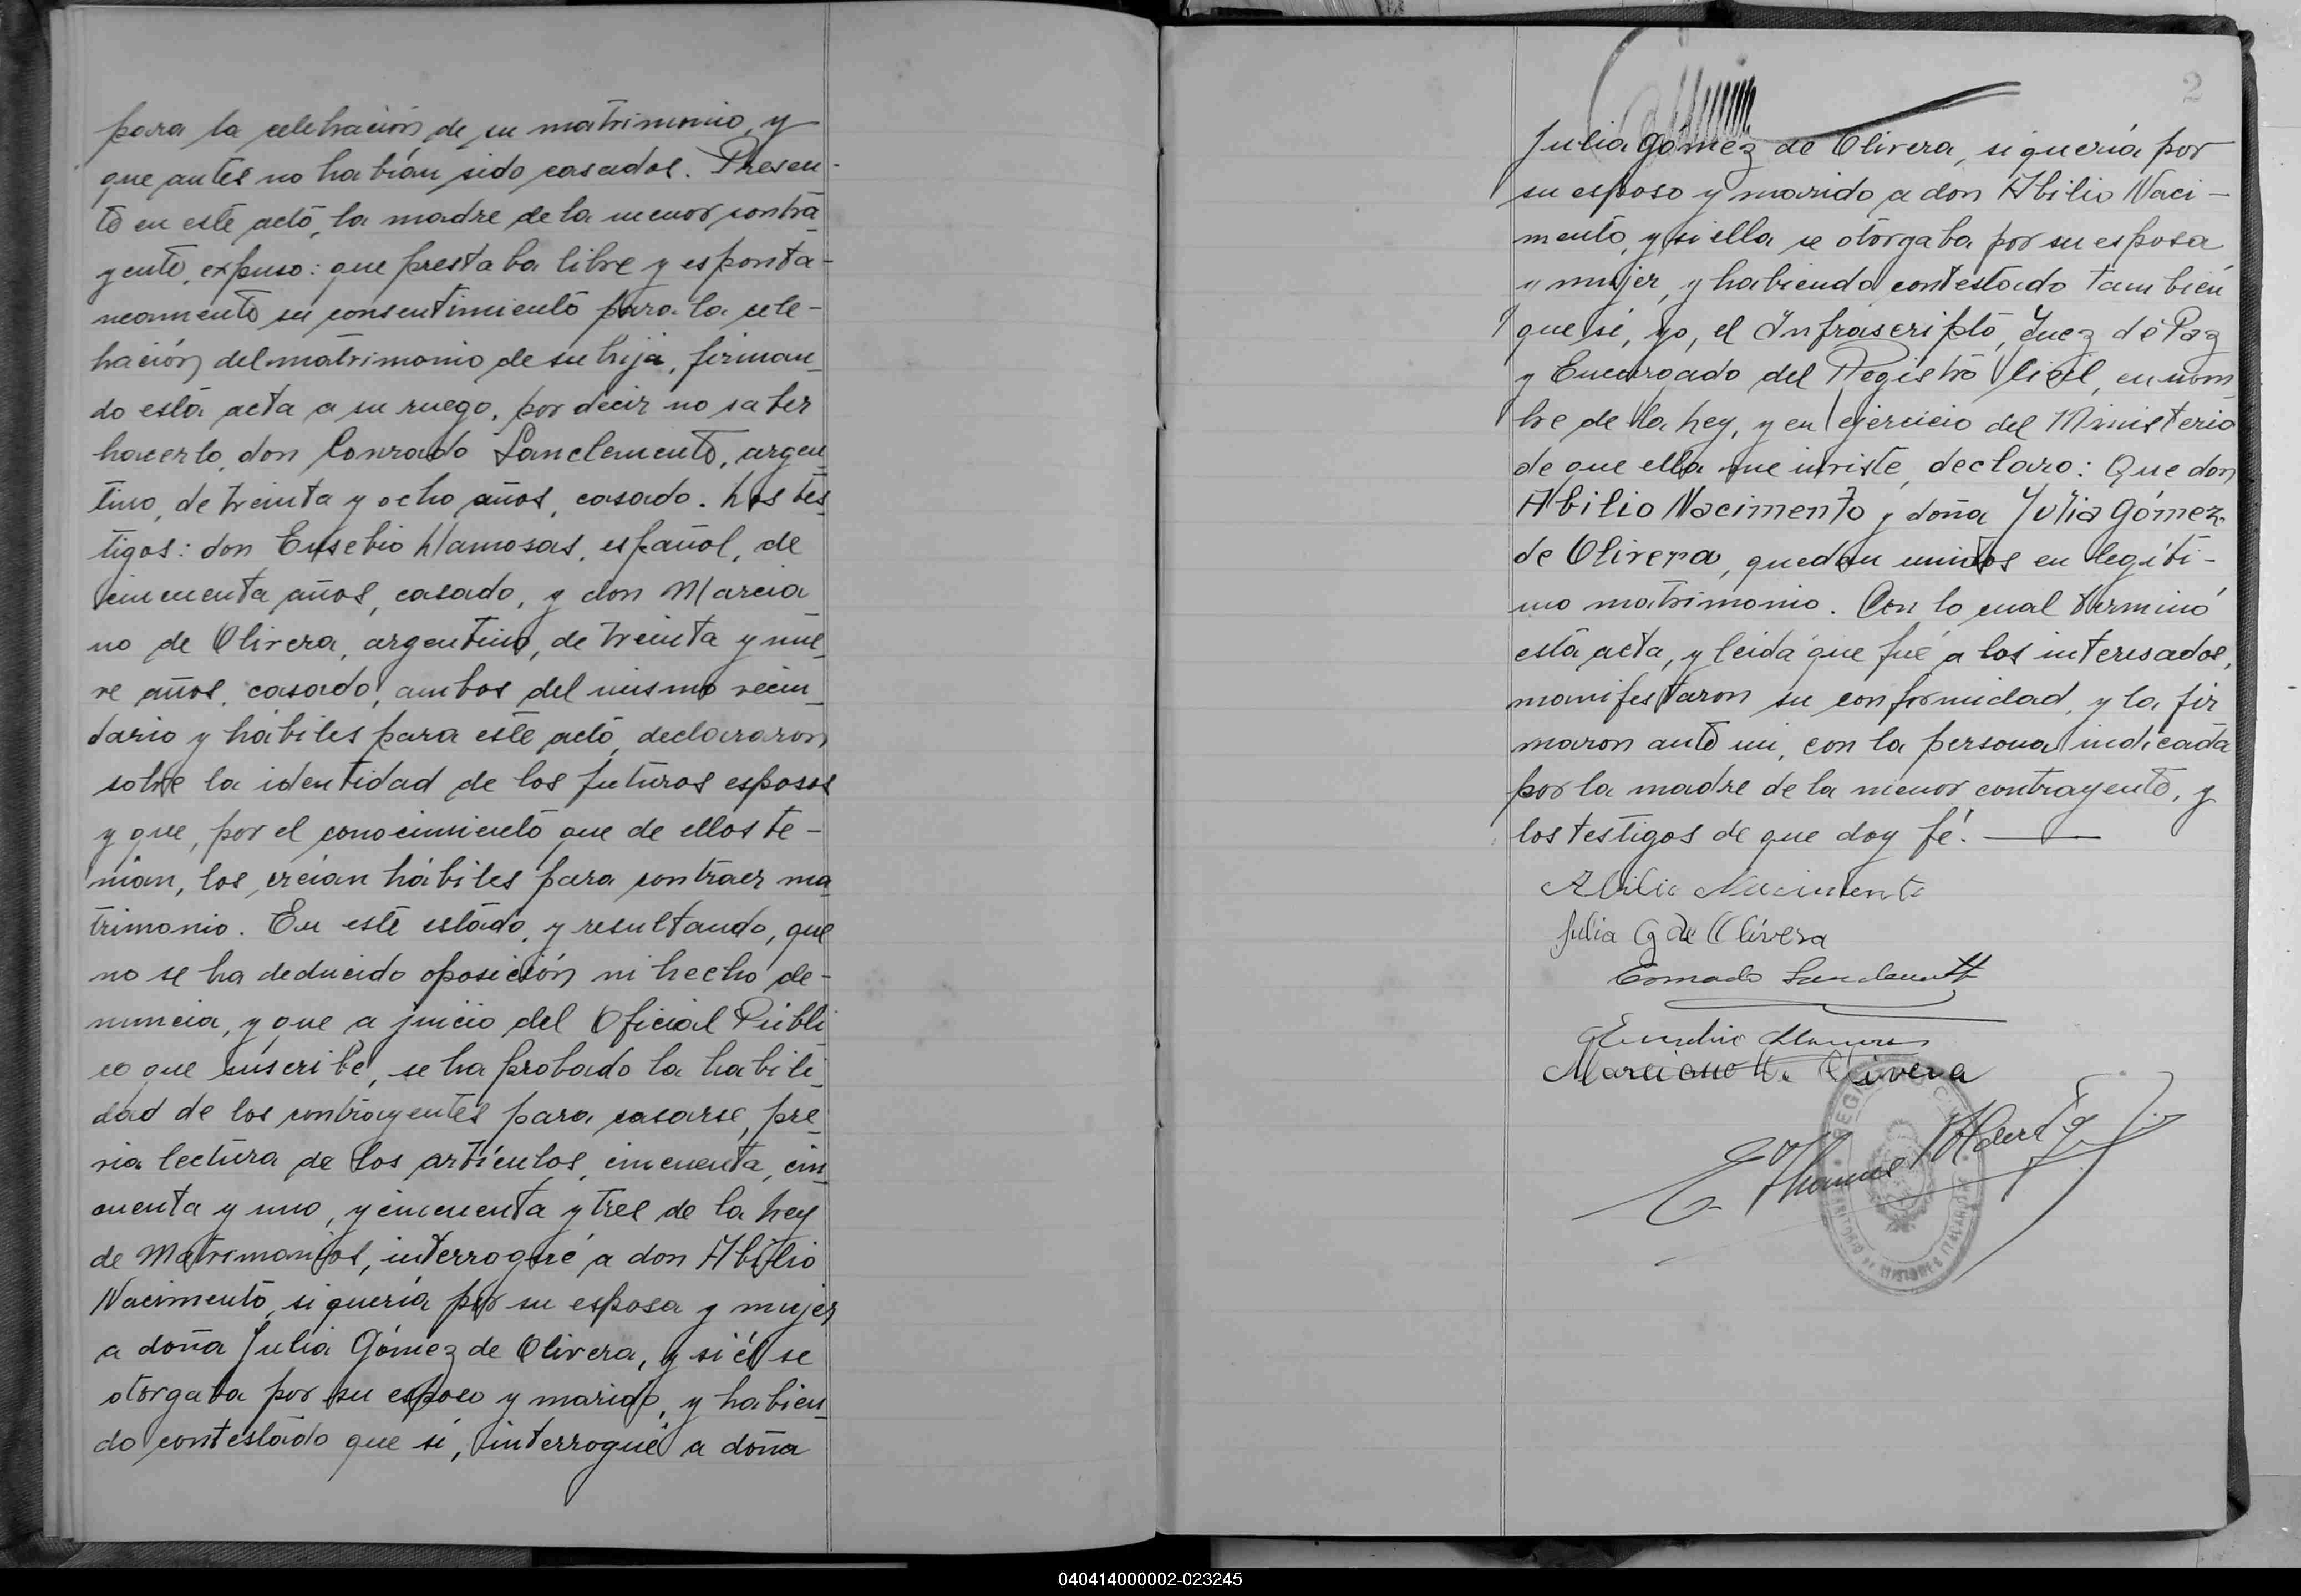 para la celebración de su matrimonio, y
que antes no habían sido casados. Presen-
te en este acto, la madre de la menor contra_
yente, expuso: que prestaba libre y esponta-
neamente su consentimiento para la cele-
bración del matrimonio de su hija, firman_
do esta acta a su ruego, por decir no saber
hacerlo, don Conrado Sanclemente, argen_
tino, de treinta y ocho años, casado. Los tes_
tigos: don Eusebio Llamosas, español, de
cincuenta años, casado, y don Marcia
no de Olivera, argentino, de treinta y nue_
ve años, casado, ambos del mismo vecin_
dario y hábiles para este acto, declararon
sobre la identidad de los futuros esposos
y que, por el conocimiento que de ellos te-
nían, los creían hábiles para contraer ma_
trimonio. En este estado, y resultando, que
no se ha deducido oposición ni hecho de-
nuncia, y que a juicio del Oficial Públi_
co que suscribe, se ha probado la habili_
dad de los contrayentes para casarse, pre_
via lectura de los artículos, cincuenta, cin_
cuenta y uno, y cincuenta y tres de la Ley
de Matrimonios, interrogué a don Abilio
Nacimento, si quería por su esposa y mujer
a doña Julia Gómez de Olivera, y si él se
otorgaba por su esposo y marido, y habien_
do contestado que sí, interrogué a doña
2
Julia Gómez de Olivera, si quería por
su esposo y marido a don Abilio Naci-
mento, y si ella se otorgaba por su esposa
y mujer, y habiendo contestado también
que sí, yo, el Infrascripto, Juez de Paz
y Encargado del Registro Civil, en nom
bre de la Ley, y en ejercicio del Ministerio
de que ella me inviste, declaro: Que don
Abilio Nacimento y doña Julia Gómez
de Olivera, quedan unidos en legíti-
mo matrimonio. Con lo cual terminó
esta acta, y leída que fué a los interesados,
manifestaron su conformidad, y la fir
maron ante mi, con la persona indicada
por la madre de la menor contrayente, y
los testigos de que doy fé.
Abilio Nacimento
Julia G de Olivera
Conrado Sanclemente
Eusebio Llamosas
Marciano de Olivera
REGISTRO CIVIL
TERRITORIO DE MISIONES
040414000002-023245